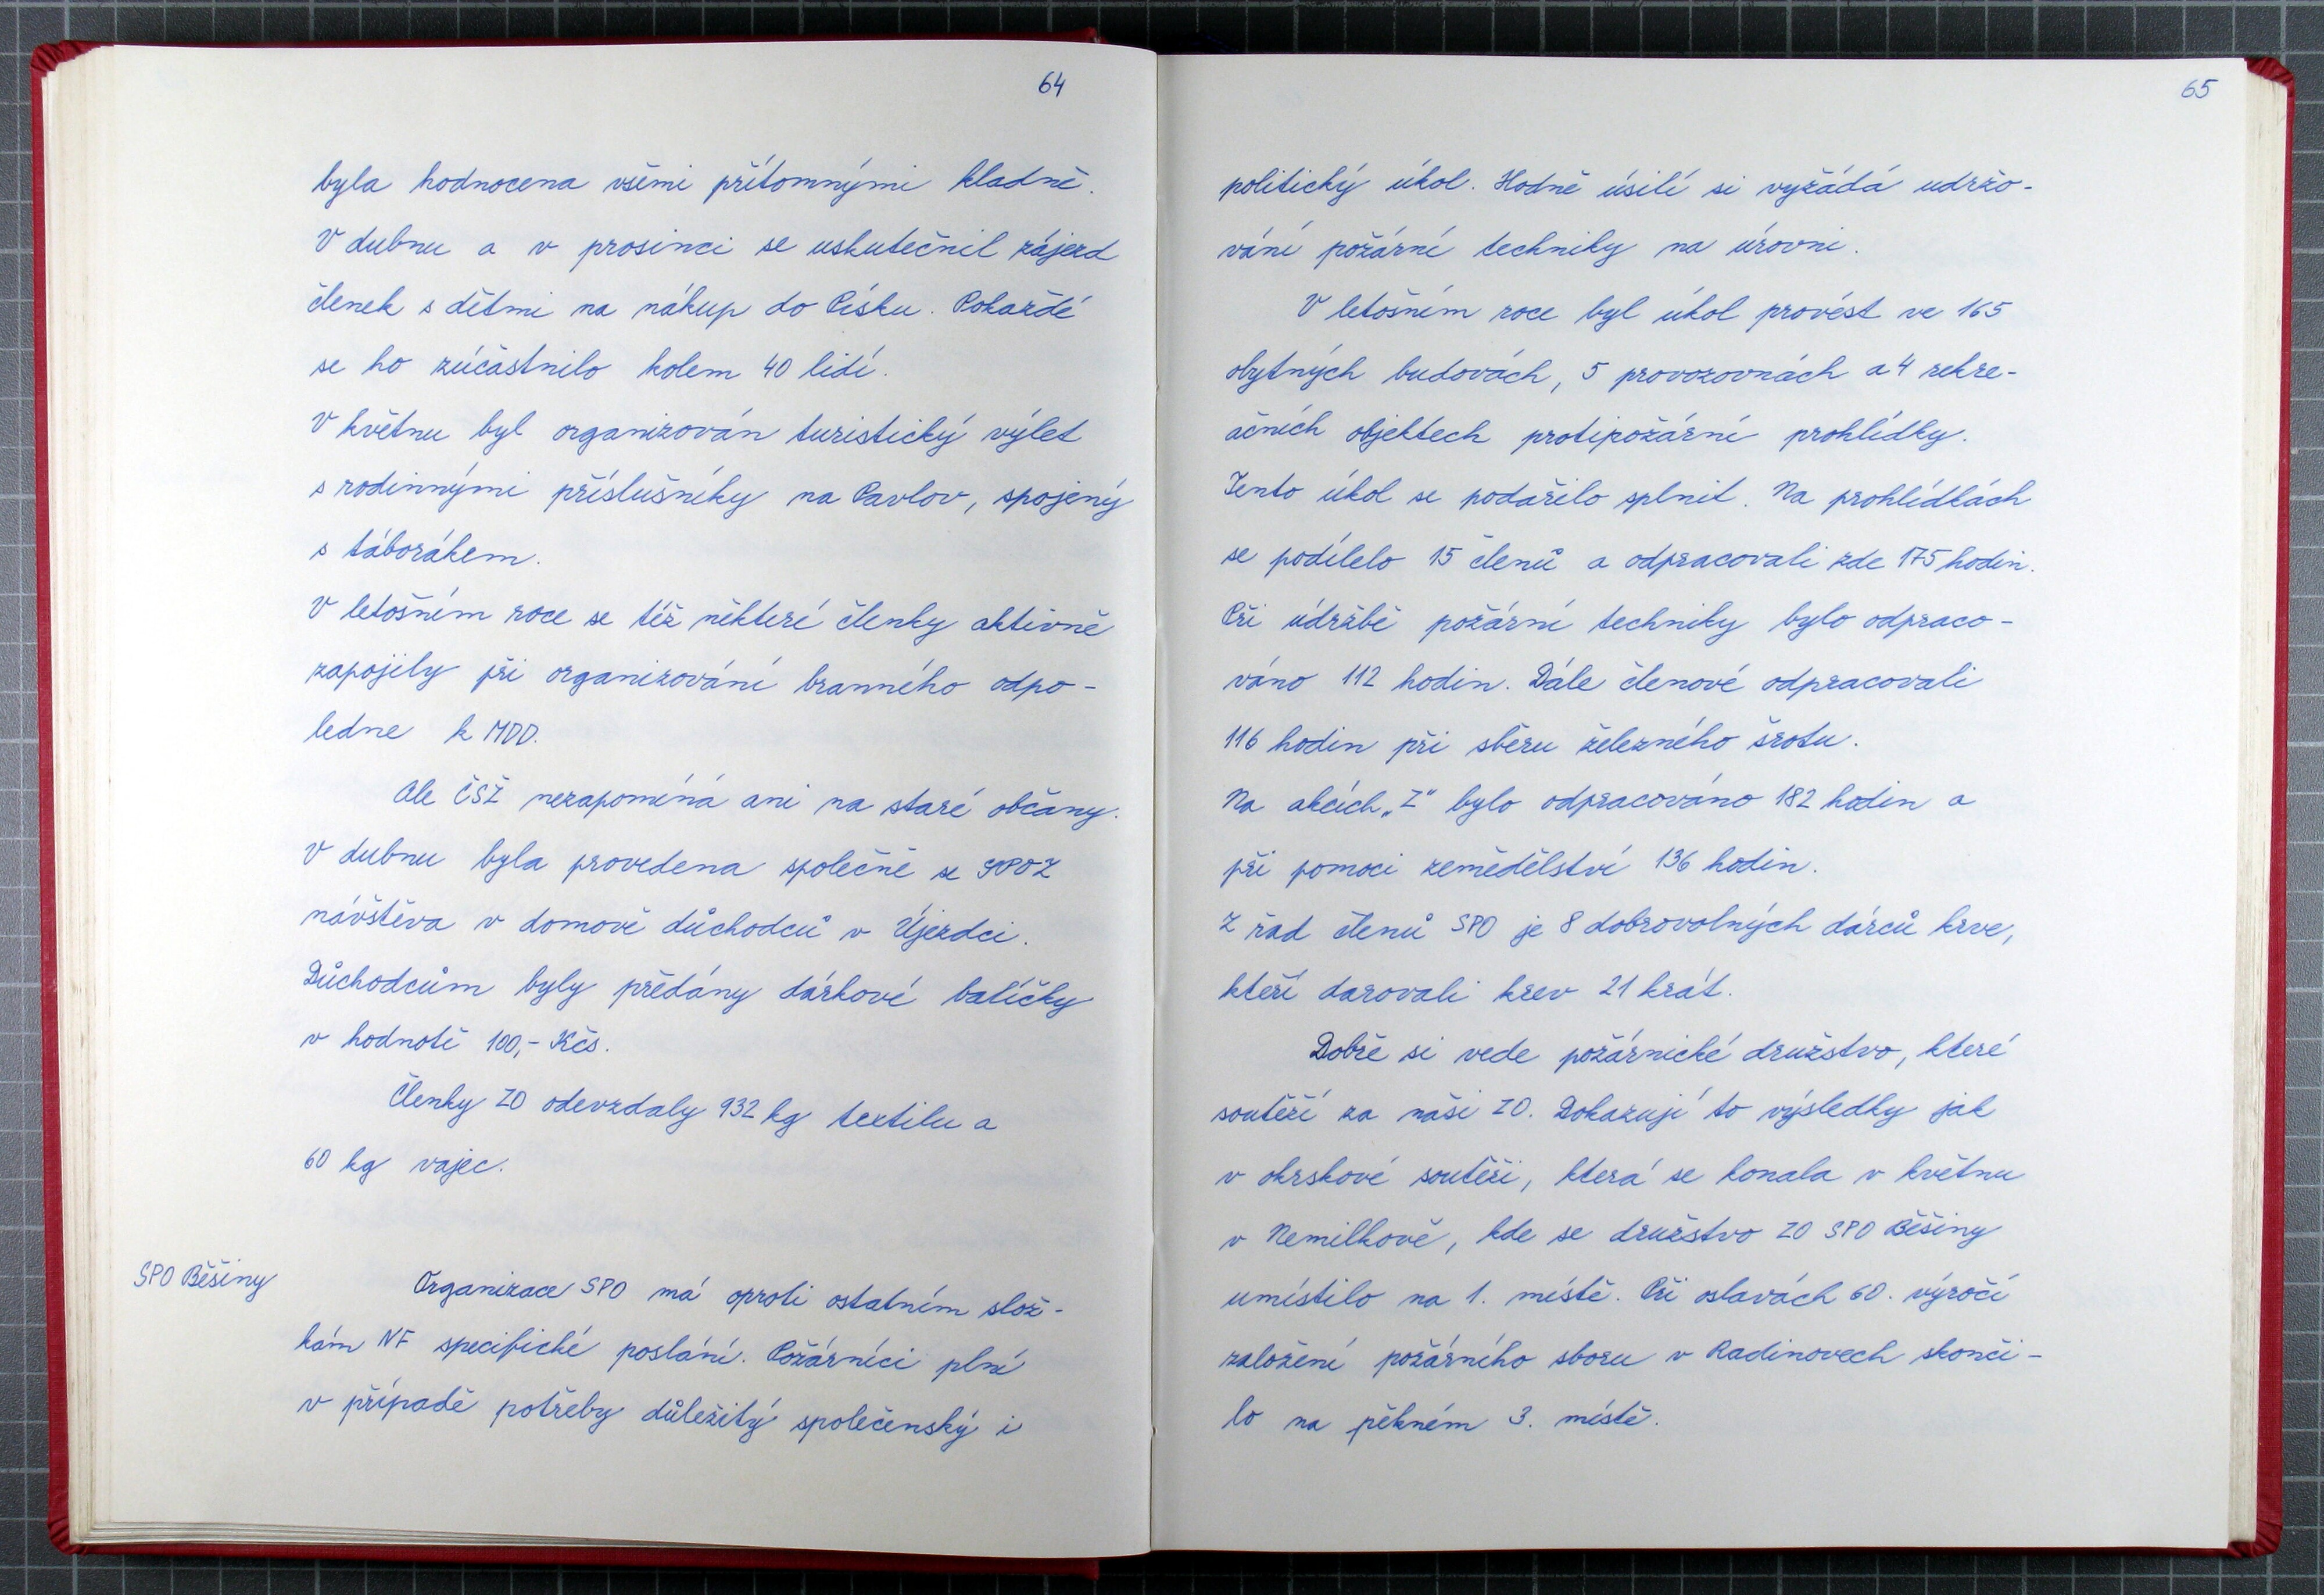 64
byla hodnocena všemi přítomnými kladně.
V dubnu a v prosinci se uskutečnil zájezd
členek s dětmi na nákup do Písku. Pokaždé
se ho zúčastnilo kolem 40 lidí.
V květnu byl organizován turistický výlet
s rodinnými příslušníky na Pavlov, spojený
s táborákem.
V letošním roce se též některé členky aktivně
zapojily při organizování branného odpo-
ledne k MDD.
Ale ČSŽ nezapomíná ani na staré občany.
V dubnu byla provedena společně se SPOZ
návštěva v domově důchodců v Újezdci.
Důchodcům byly předány dárkové balíčky
v hodnotě 100,- Kčs.
Členky ZO odevzdaly 932 kg textilu a
60 kg vajec.
SPO Běšiny
Organizace SPO má oproti ostatním slož-
kám NF specifické poslání. Požárníci plní
v případě potřeby důležitý společenský i
65
politický úkol. Hodně úsilí si vyžádá udržo-
vání požární techniky na úrovni.
V letošním roce byl úkol provést ve 165
obytných budovách, 5 provozovnách a 4 rekre-
ačních objektech protipožární prohlídky.
Tento úkol se podařilo splnit. Na prohlídkách
se podílelo 15 členů a odpracovali zde 175 hodin.
Při údržbě požární techniky bylo odpraco-
váno 112 hodin. Dále členové odpracovali
116 hodin při sběru železného šrotu.
Na akcích „Z" bylo odpracováno 182 hodin a
při pomoci zemědělství 136 hodin.
Z řad členů SPO je 8 dobrovolných dárců krve,
kteří darovali krev 21 krát.
Dobře si vede požárnické družstvo, které
soutěží za naši ZO. Dokazují to výsledky jak
v okrskové soutěži, která se konala v květnu
v Nemilkově, kde se družstvo ZO SPO Běšiny
umístilo na 1. místě. Při oslavách 60. výročí
založení požárního sboru v Radinovech skonči-
lo na pěkném 3. místě.